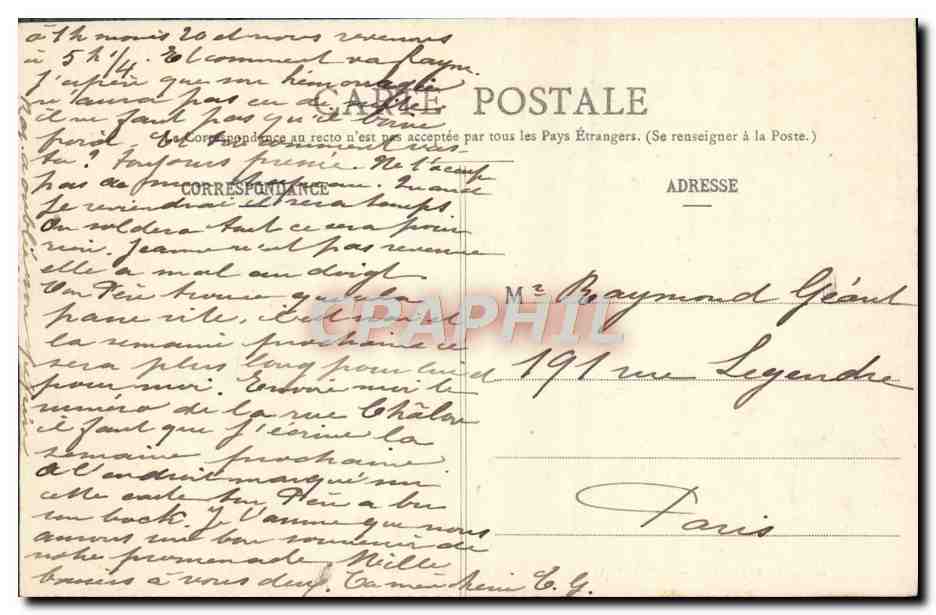 à 1h moins 20 et nous revenons
à 5 h 1/4. Et comment va Raym.
J'espère que son hémorragie
n'aura pas eu de suite
il ne faut pas qu'il boive
froid. Et toi comment vas
tu? toujours pressée. Ne t'occupe
pas de mon. Quand
je reviendrai il sera temps
On soldera tout ce sera pour
rien. Jeanne n'est pas revenue
elle a mal au doigt.
Ton Père trouve que cela
passe vite, il est
la semaine prochaine ce
sera plus long pour lui et
pour moi. Envoie moi le
numéro de la rue Châlon
il faut que j'écrive la
semaine prochaine
A l'endroit marqué sur
cette carte ton Père a bu
un bock. Je t'assure que nous
aurons un bon souvenir de
notre promenade Mille
baisers à vous deux. Ta mère chérie E. G.
CARTE POSTALE
La Correspondance au recto n'est pas acceptée par tous les Pays Étrangers. (Se renseigner à la Poste.)
CORRESPONDANCE
ADRESSE
Mr Raymond Géant
191 rue Legendre
Paris
CPAPHIL